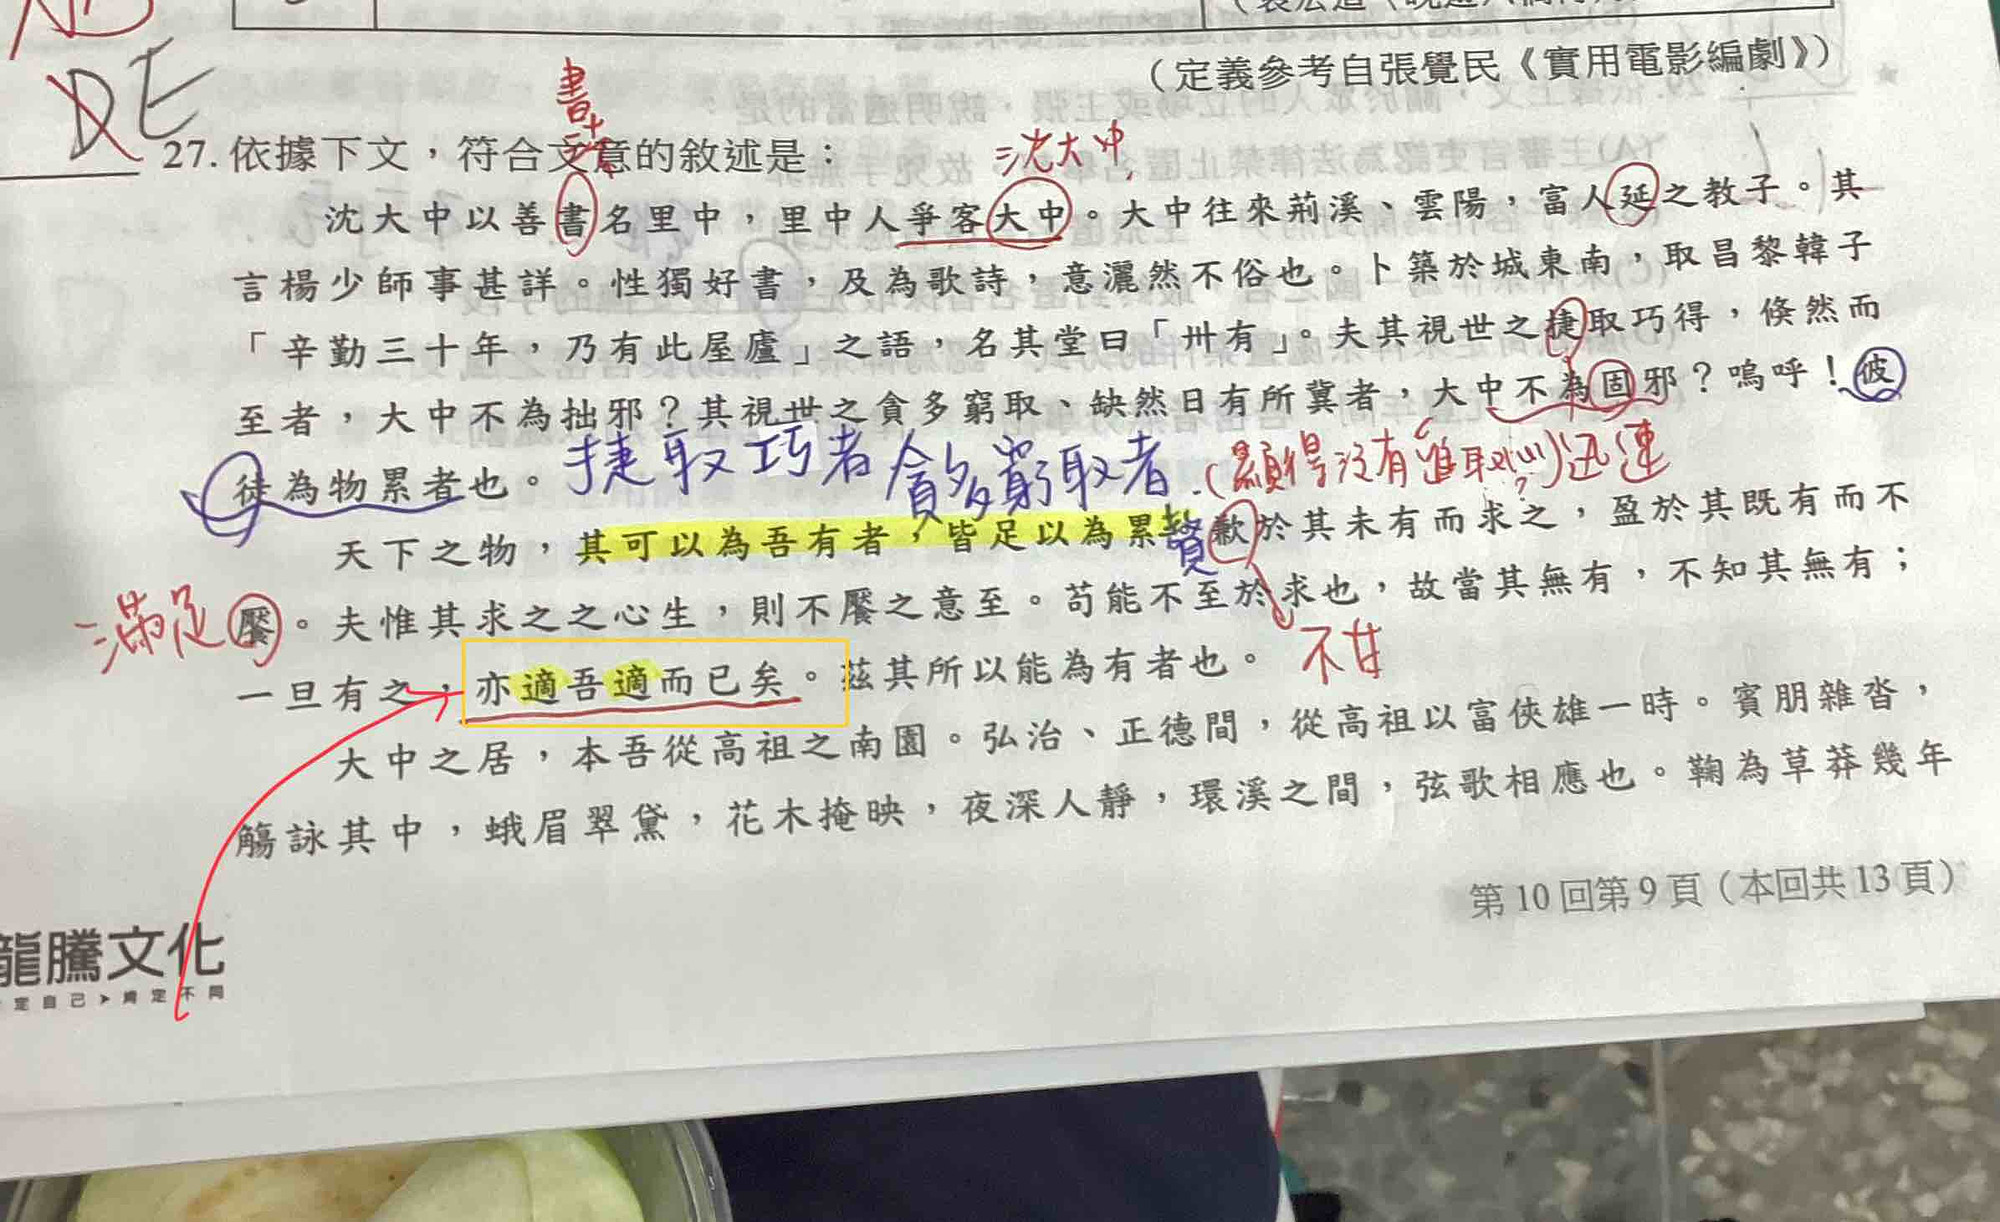 DE
(定義參考自張覺民《實用電影編劇》)
書
27. 依據下文，符合文意的敘述是：
沈大中
沈大中以善書名里中，里中人爭客大中。大中往來荊溪、雲陽，富人延之教子。其
言楊少師事甚詳。性獨好書，及為歌詩，意灑然不俗也。卜築於城東南，取昌黎韓子
「辛勤三十年，乃有此屋廬」之語，名其堂曰「卅有」。夫其視世之捷取巧得，倏然而
至者，大中不為拙邪？其視世之貪多窮取、缺然日有所冀者，大中不為固邪？嗚呼！彼
捷取巧者 貪多窮取者 (顯得沒有進取心) 迅速
徒為物累者也。
天下之物，其可以為吾有者，皆足以為累。歉於其未有而求之，盈於其既有而不
滿足
饜。夫惟其求之之心生，則不饜之意至。苟能不至於求也，故當其無有，不知其無有；
不甘
一旦有之，亦適吾適而已矣。茲其所以能為有者也。
大中之居，本吾從高祖之南園。弘治、正德間，從高祖以富俠雄一時。賓朋雜沓，
觴詠其中，蛾眉翠黛，花木掩映，夜深人靜，環溪之間，弦歌相應也。鞠為草莽幾年
第 10 回第 9 頁（本回共 13 頁）
龍騰文化
定自己➤肯定不同